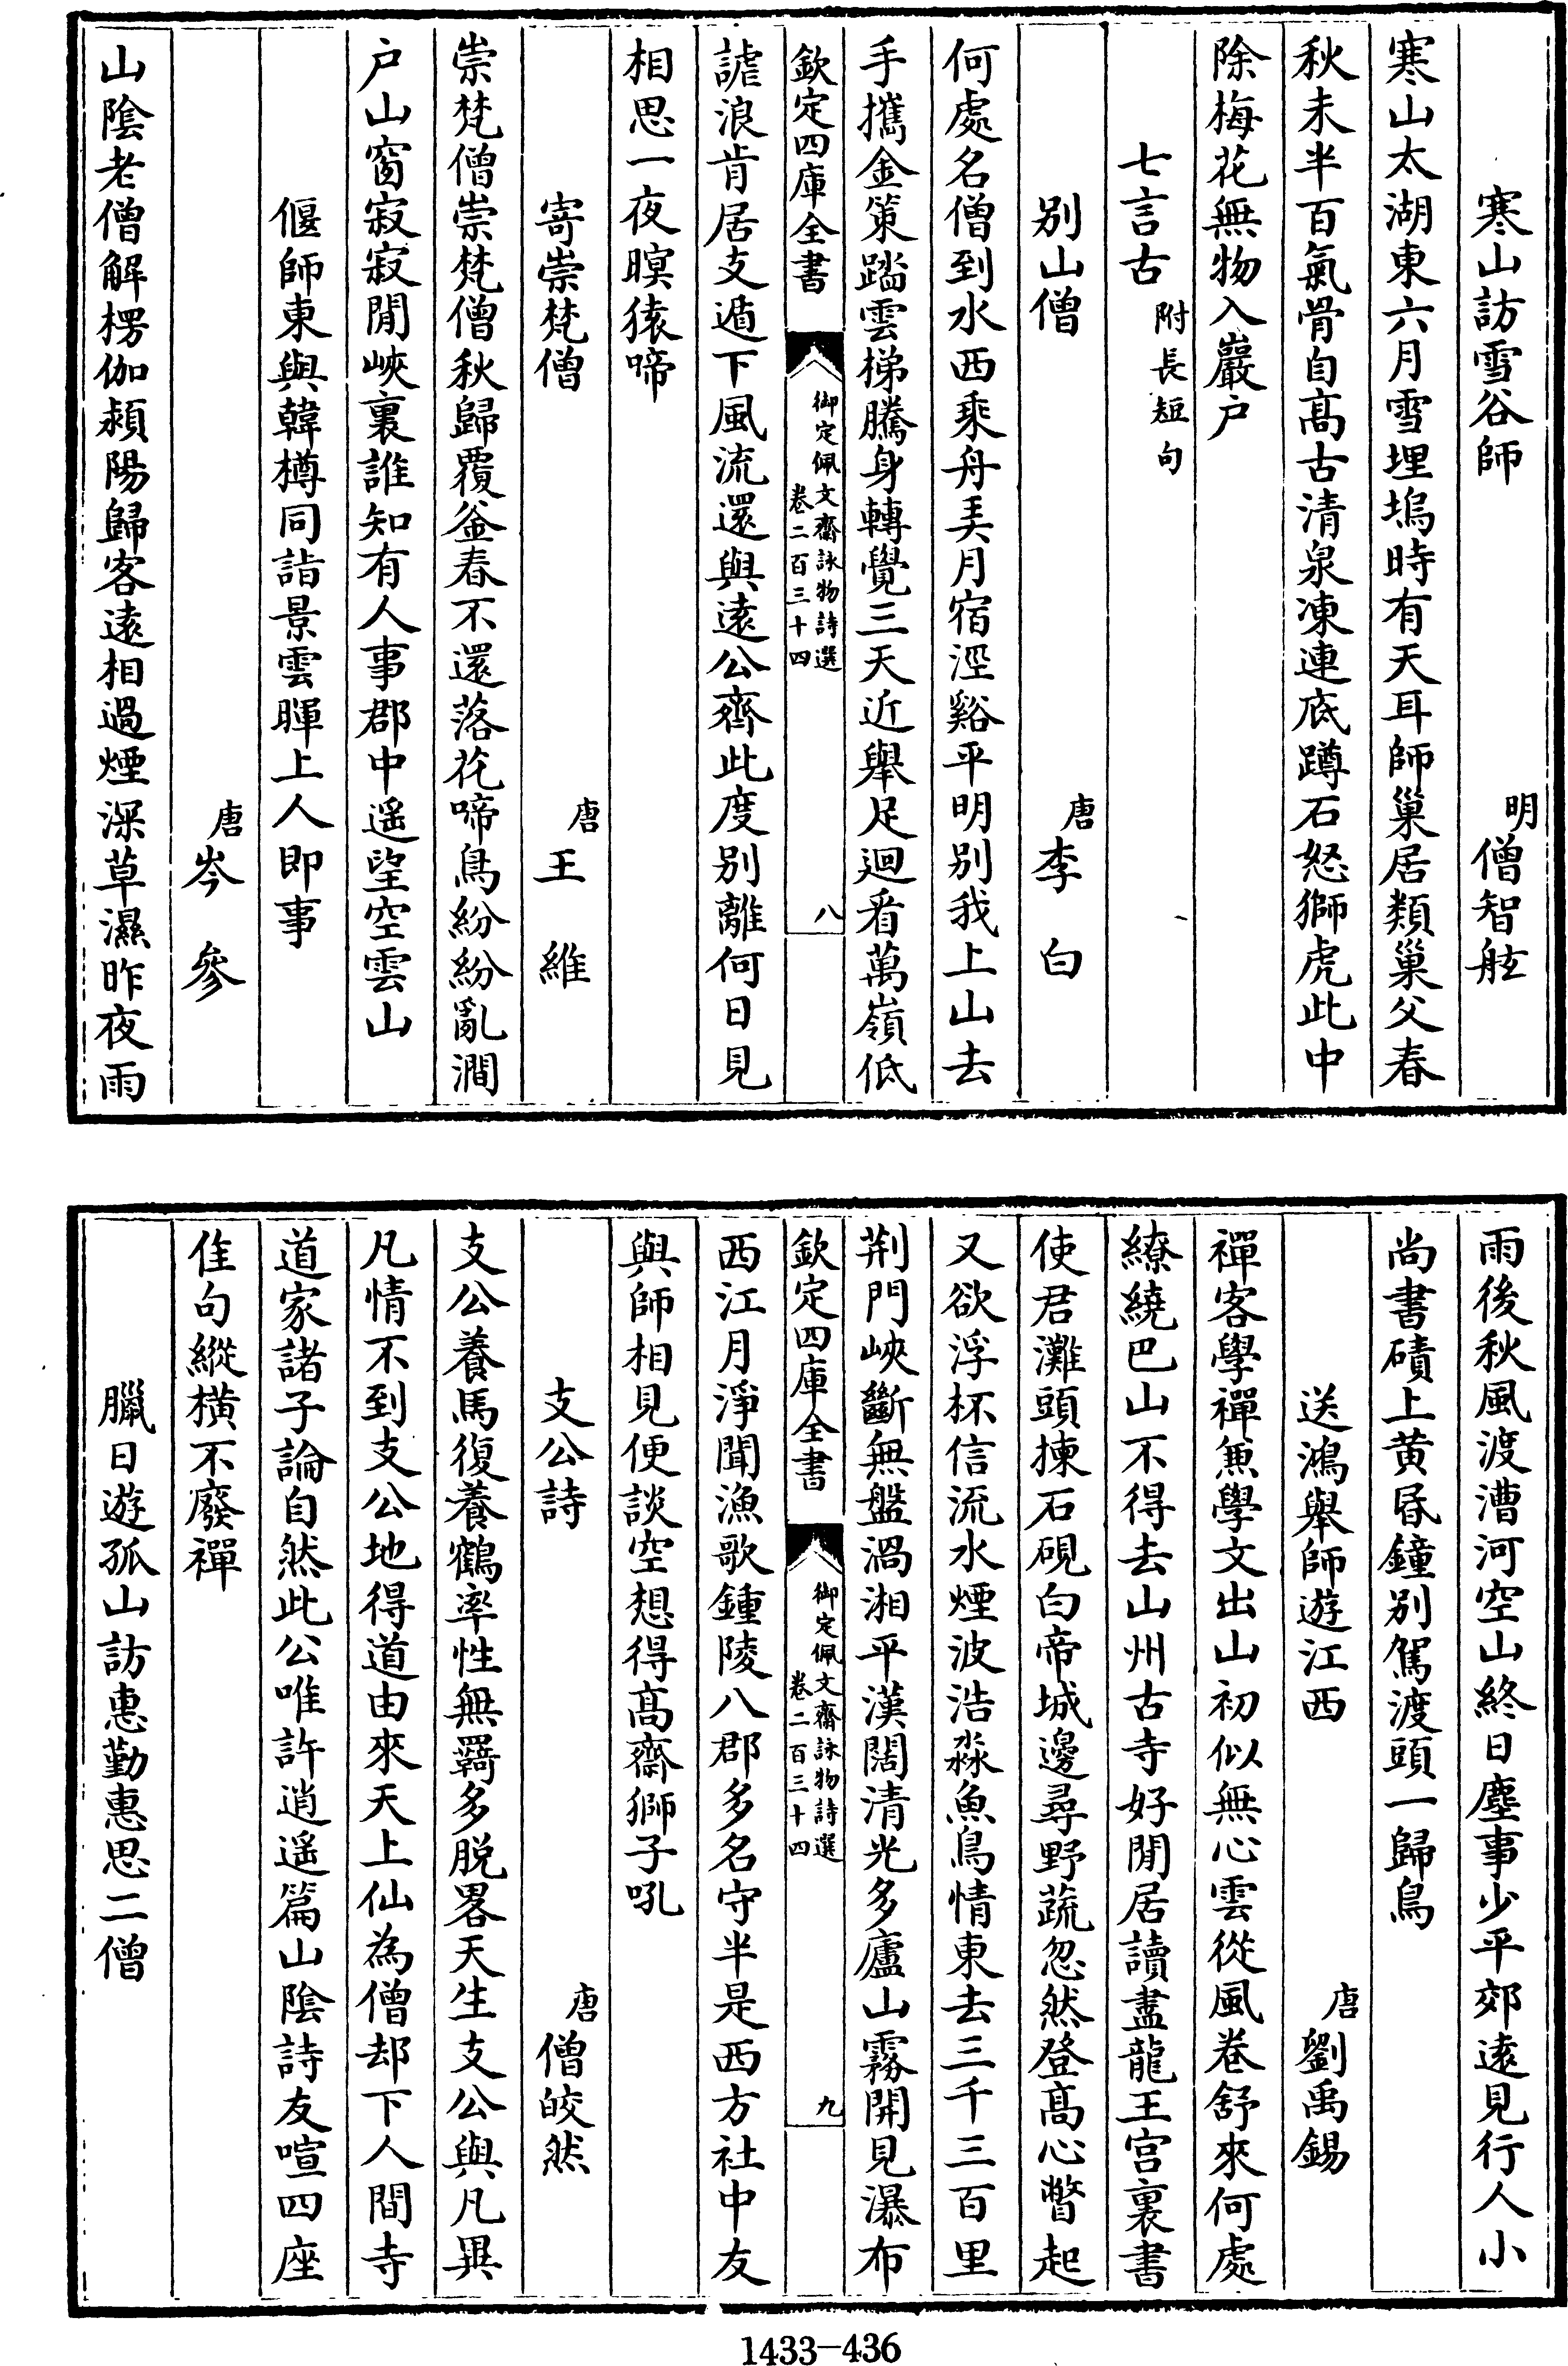 寒山訪雪谷師 明 僧智舷
寒山太湖東六月雪埋塢時有天耳師巢居類巢父春
秋未半百氣骨自髙古清泉凍連底蹲石怒獅虎此中
除梅花無物入巖户
七言古 附長短句
别山僧 唐 李白
何處名僧到水西乘舟弄月宿涇谿平明别我上山去
手攜金策踏雲梯騰身轉覺三天近舉足迴看萬嶺低
欽定四庫全書 御定佩文齋詠物詩選 卷二百三十四 八
謔浪肯居支遁下風流還與遠公齊此度别離何日見
相思一夜暝猿啼
寄崇梵僧 唐 王維
崇梵僧崇梵僧秋歸覆釜春不還落花啼鳥紛紛亂澗
户山窗寂寂閒峽裏誰知有人事郡中遥望空雲山
偃師東與韓樽同詣景雲暉上人即事
唐 岑參
山陰老僧解楞伽潁陽歸客遠相過煙深草濕昨夜雨
雨後秋風渡漕河空山終日塵事少平郊遠見行人小
尚書磧上黄昏鐘别駕渡頭一歸鳥
送鴻舉師遊江西 唐 劉禹錫
禪客學禪兼學文出山初似無心雲從風卷舒來何處
繚繞巴山不得去山州古寺好閒居讀盡龍王宫裏書
使君灘頭揀石硯白帝城邊尋野蔬忽然登髙心瞥起
又欲浮杯信流水煙波浩淼魚鳥情東去三千三百里
荆門峽斷無盤渦湘平漢闊清光多廬山霧開見瀑布
欽定四庫全書 御定佩文齋詠物詩選 卷二百三十四 九
西江月淨聞漁歌鍾陵八郡多名守半是西方社中友
與師相見便談空想得髙齋獅子吼
支公詩 唐 僧皎然
支公養馬復養鶴率性無羇多脱畧天生支公與凡異
凡情不到支公地得道由來天上仙為僧却下人間寺
道家諸子論自然此公唯許逍遥篇山陰詩友喧四座
佳句縱橫不廢禪
臘日遊孤山訪惠勤惠思二僧
1433-436